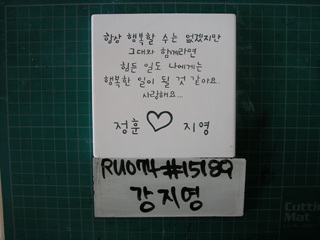 항상 행복할 수는 없겠지만
그대와 함께라면
힘든 일도 나에게는
행복한 일이 될 것 같아요.
사랑해요...
정훈 ♡ 지영
RU074#15189
강지영
Cutting
Mat